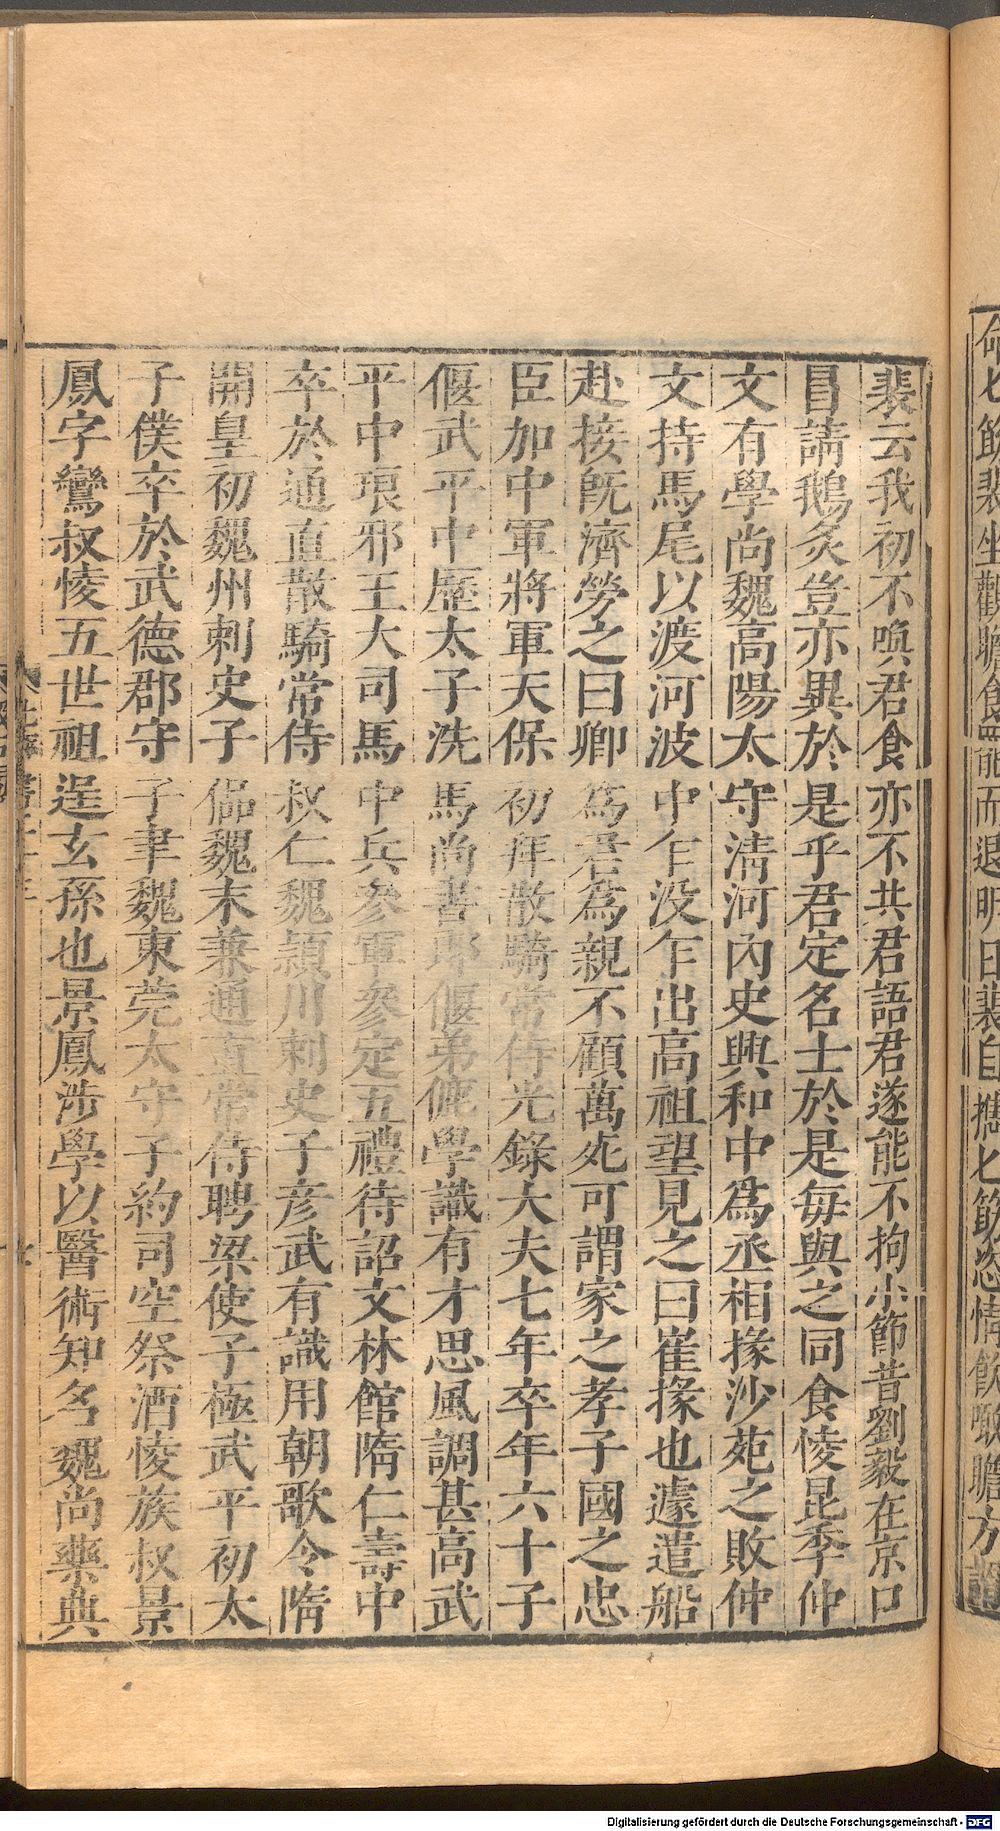 命匕筯裴坐觀瞻食罷而退明日裴自攜匕筯恣情飲噉瞻方謂
裴云我初不喚君食亦不共君語君遂能不拘小節昔劉毅在京口
冒請鵝炙豈亦異於是乎君定名士於是每與之同食㥄昆季仲
文有學尚魏高陽太守清河內史興和中爲丞相掾沙苑之敗仲
文持馬尾以渡河波中乍没乍出高祖望見之曰崔掾也遽遣船
赴接既濟勞之曰卿爲君爲親不顧萬死可謂家之孝子國之忠
臣加中軍將軍天保初拜散騎常侍光錄大夫七年卒年六十子
偃武平中歷太子洗馬尚書郎偃弟儦學識有才思風調甚高武
平中琅邪王大司馬中兵參軍參定五禮待詔文林館隋仁壽中
卒於通直散騎常侍叔仁魏潁川刺史子彥武有識用朝歌令隋
開皇初魏州刺史子偘魏末兼通直常侍聘梁使子極武平初太
子僕卒於武德郡守子聿魏東莞太守子約司空祭酒㥄族叔景
鳳字鸞叔㥄五世祖逞玄孫也景鳳涉學以醫術知名魏尚藥典
Digitalisierung gefördert durch die Deutsche Forschungsgemeinschaft - DFG